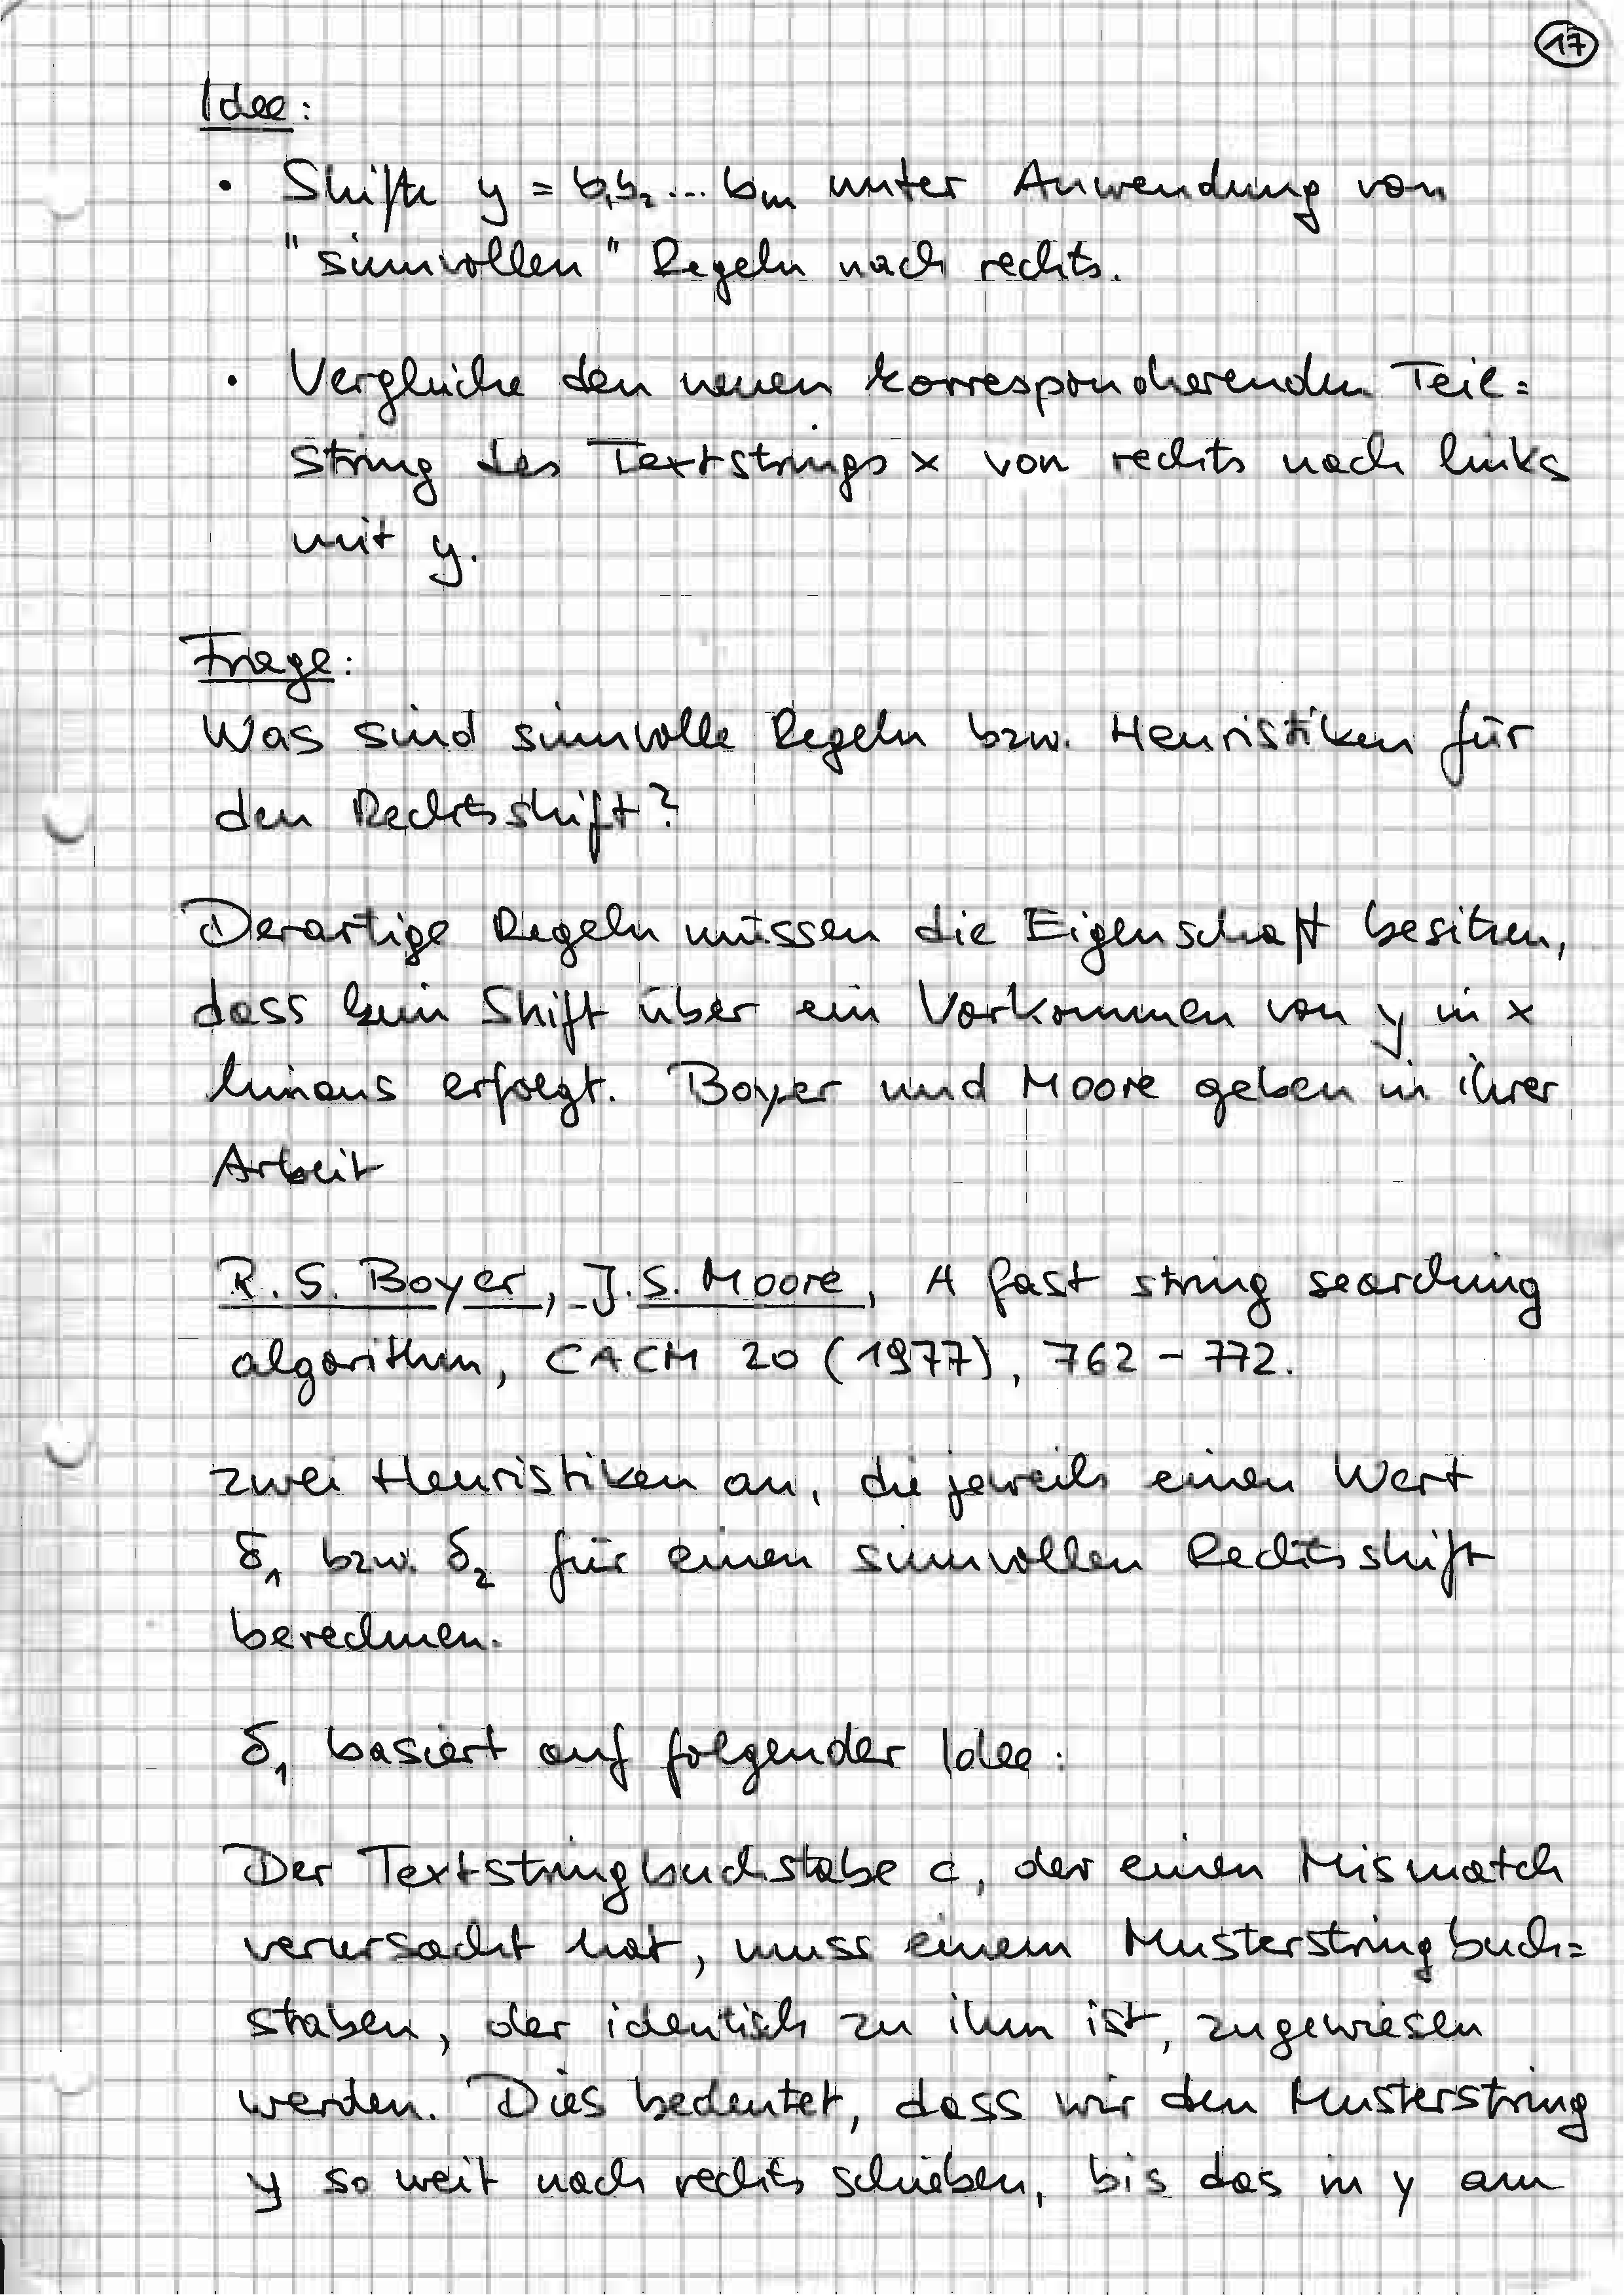 17
Idee:
• Shifte y = b₁b₂ ... bₘ unter Anwendung von
"sinnvollen" Regeln nach rechts.
• Vergleiche den neuen korrespondierenden Teil=
string des Textstrings x von rechts nach links
mit y.
Frage:
Was sind sinnvolle Regeln bzw. Heuristiken für
den Rechtsshift?
Derartige Regeln müssen die Eigenschaft besitzen,
dass kein Shift über ein Vorkommen von y in x
hinaus erfolgt. Boyer und Moore geben in ihrer
Arbeit
R. S. Boyer, J. S. Moore, A fast string searching
algorithm, CACM 20 (1977), 762 - 772.
zwei Heuristiken an, die jeweils einen Wert
δ₁ bzw. δ₂ für einen sinnvollen Rechtsshift
berechnen.
δ₁ basiert auf folgender Idee:
Der Textstringbuchstabe c, der einen Mismatch
verursacht hat, muss einem Musterstringbuch=
staben, der identisch zu ihm ist, zugewiesen
werden. Dies bedeutet, dass wir den Musterstring
y so weit nach rechts schieben, bis das in y am